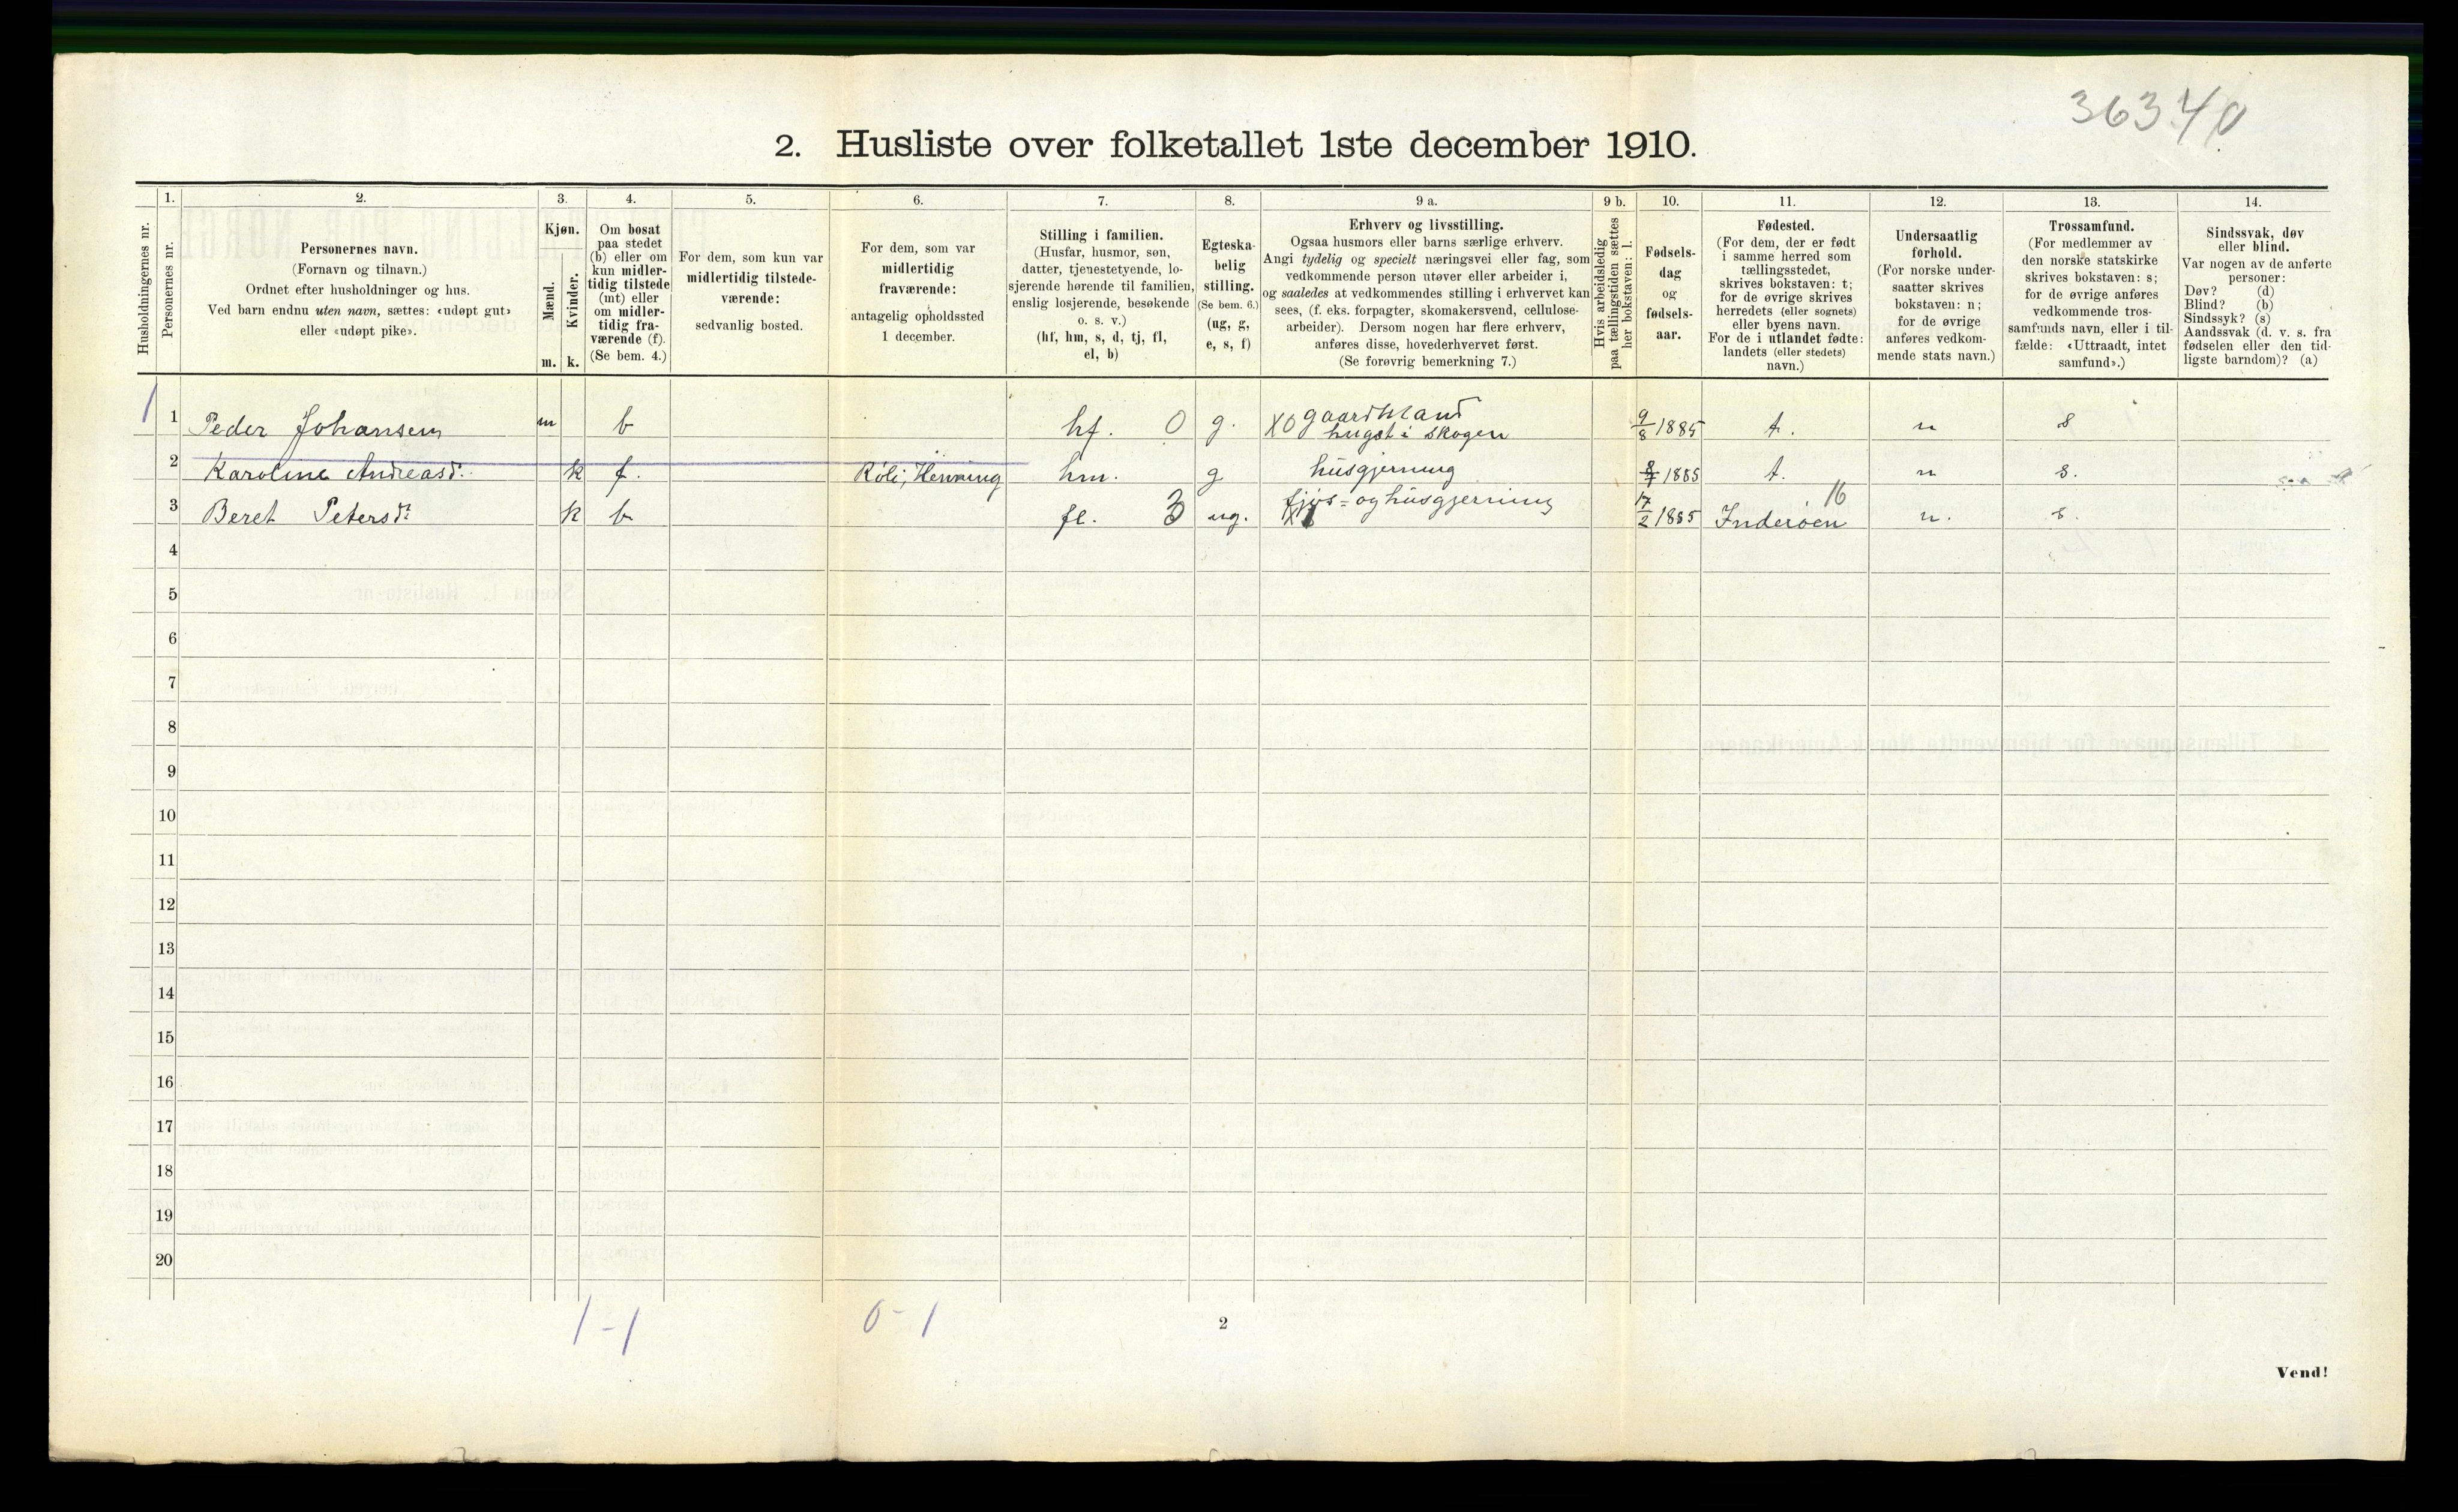 36340
2. Husliste over folketallet 1ste december 1910.
Husholdningernes nr.
1.
Personernes nr.
2.
Personernes navn.
(Fornavn og tilnavn.)
Ordnet efter husholdninger og hus.
Ved barn endnu uten navn, sættes: «udøpt gut»
eller «udøpt pike».
3.
Kjøn.
Mænd.
Kvinder.
m. k.
4.
Om bosat
paa stedet
(b) eller om
kun midler-
tidig tilstede
(mt) eller
om midler-
tidig fra-
værende (f).
(Se bem. 4.)
5.
For dem, som kun var
midlertidig tilstede-
værende:
sedvanlig bosted.
6.
For dem, som var
midlertidig
fraværende:
antagelig opholdssted
1 december.
7.
Stilling i familien.
(Husfar, husmor, søn,
datter, tjenestetyende, lo-
sjerende hørende til familien,
enslig losjerende, besøkende
o. s. v.)
(hf, hm, s, d, tj, fl,
el, b)
8.
Egteska-
belig
stilling.
(Se bem. 6.)
(ug, g,
e, s, f)
9 a.
Erhverv og livsstilling.
Ogsaa husmors eller barns særlige erhverv.
Angi tydelig og specielt næringsvei eller fag, som
vedkommende person utøver eller arbeider i,
og saaledes at vedkommendes stilling i erhvervet kan
sees, (f. eks. forpagter, skomakersvend, cellulose-
arbeider). Dersom nogen har flere erhverv,
anføres disse, hovederhvervet først.
(Se forøvrig bemerkning 7.)
9 b.
Hvis arbeidsledig
paa tællingstiden sættes
her bokstaven: l.
10.
Fødsels-
dag
og
fødsels-
aar.
11.
Fødested.
(For dem, der er født
i samme herred som
tællingsstedet,
skrives bokstaven: t;
for de øvrige skrives
herredets (eller sognets)
eller byens navn.
For de i utlandet fødte:
landets (eller stedets)
navn.)
12.
Undersaatlig
forhold.
(For norske under-
saatter skrives
bokstaven: n;
for de øvrige
anføres vedkom-
mende stats navn.)
13.
Trossamfund.
(For medlemmer av
den norske statskirke
skrives bokstaven: s;
for de øvrige anføres
vedkommende tros-
samfunds navn, eller i til-
fælde: «Uttraadt, intet
samfund».)
14.
Sindssvak, døv
eller blind.
Var nogen av de anførte
personer:
Døv? (d)
Blind? (b)
Sindssyk? (s)
Aandssvak (d. v. s. fra
fødselen eller den tid-
ligste barndom)? (a)
1 1 Peder Johansen m b hf. 0 g. X0 gaardmand
hugst i skogen 9/8 1885 t. n s
2 Karoline Andreasd: k f. Röli, Henning hm. g husgjerning 8/7 1885 t. n s.
3 Beret Petersd: k b fl. 3 ug. fjøs- og husgjerning 17/2 1885 Inderøen 16 n. s.
4
5
6
7
8
9
10
11
12
13
14
15
16
17
18
19
20
1 - 1 0 - 1
2
Vend!